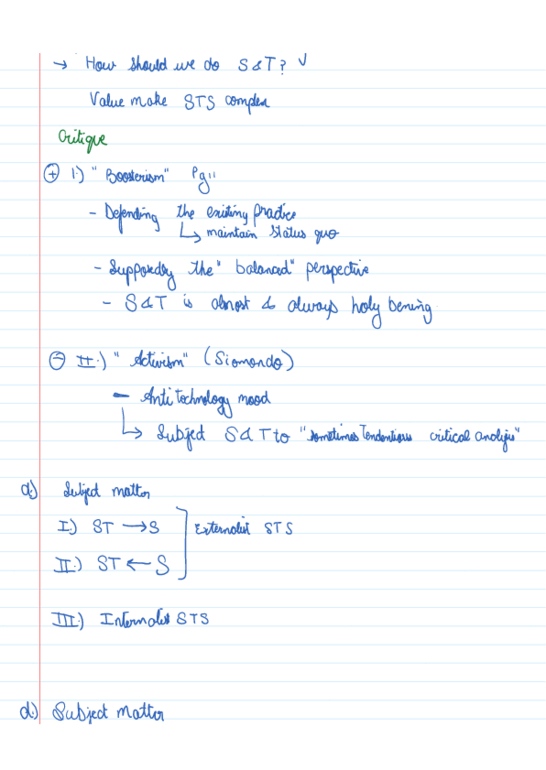 → How should we do S&T? √
Value make STS complex
Critique
⊕ I.) "Boosterism" Pg 11
- Defending the existing practice
↳ maintain status quo
- Supposedly the "balanced" perspective
- S&T is almost & always holy bening
⊖ II.) "Activism" (Siomondo)
- Anti technology mood
↳ Subject S&T to "sometimes Tendentious critical analysis"
d.) Subject matter
I.) ST → S
Externalist STS
II.) ST ← S
III.) Internalist STS
d.) Subject matter